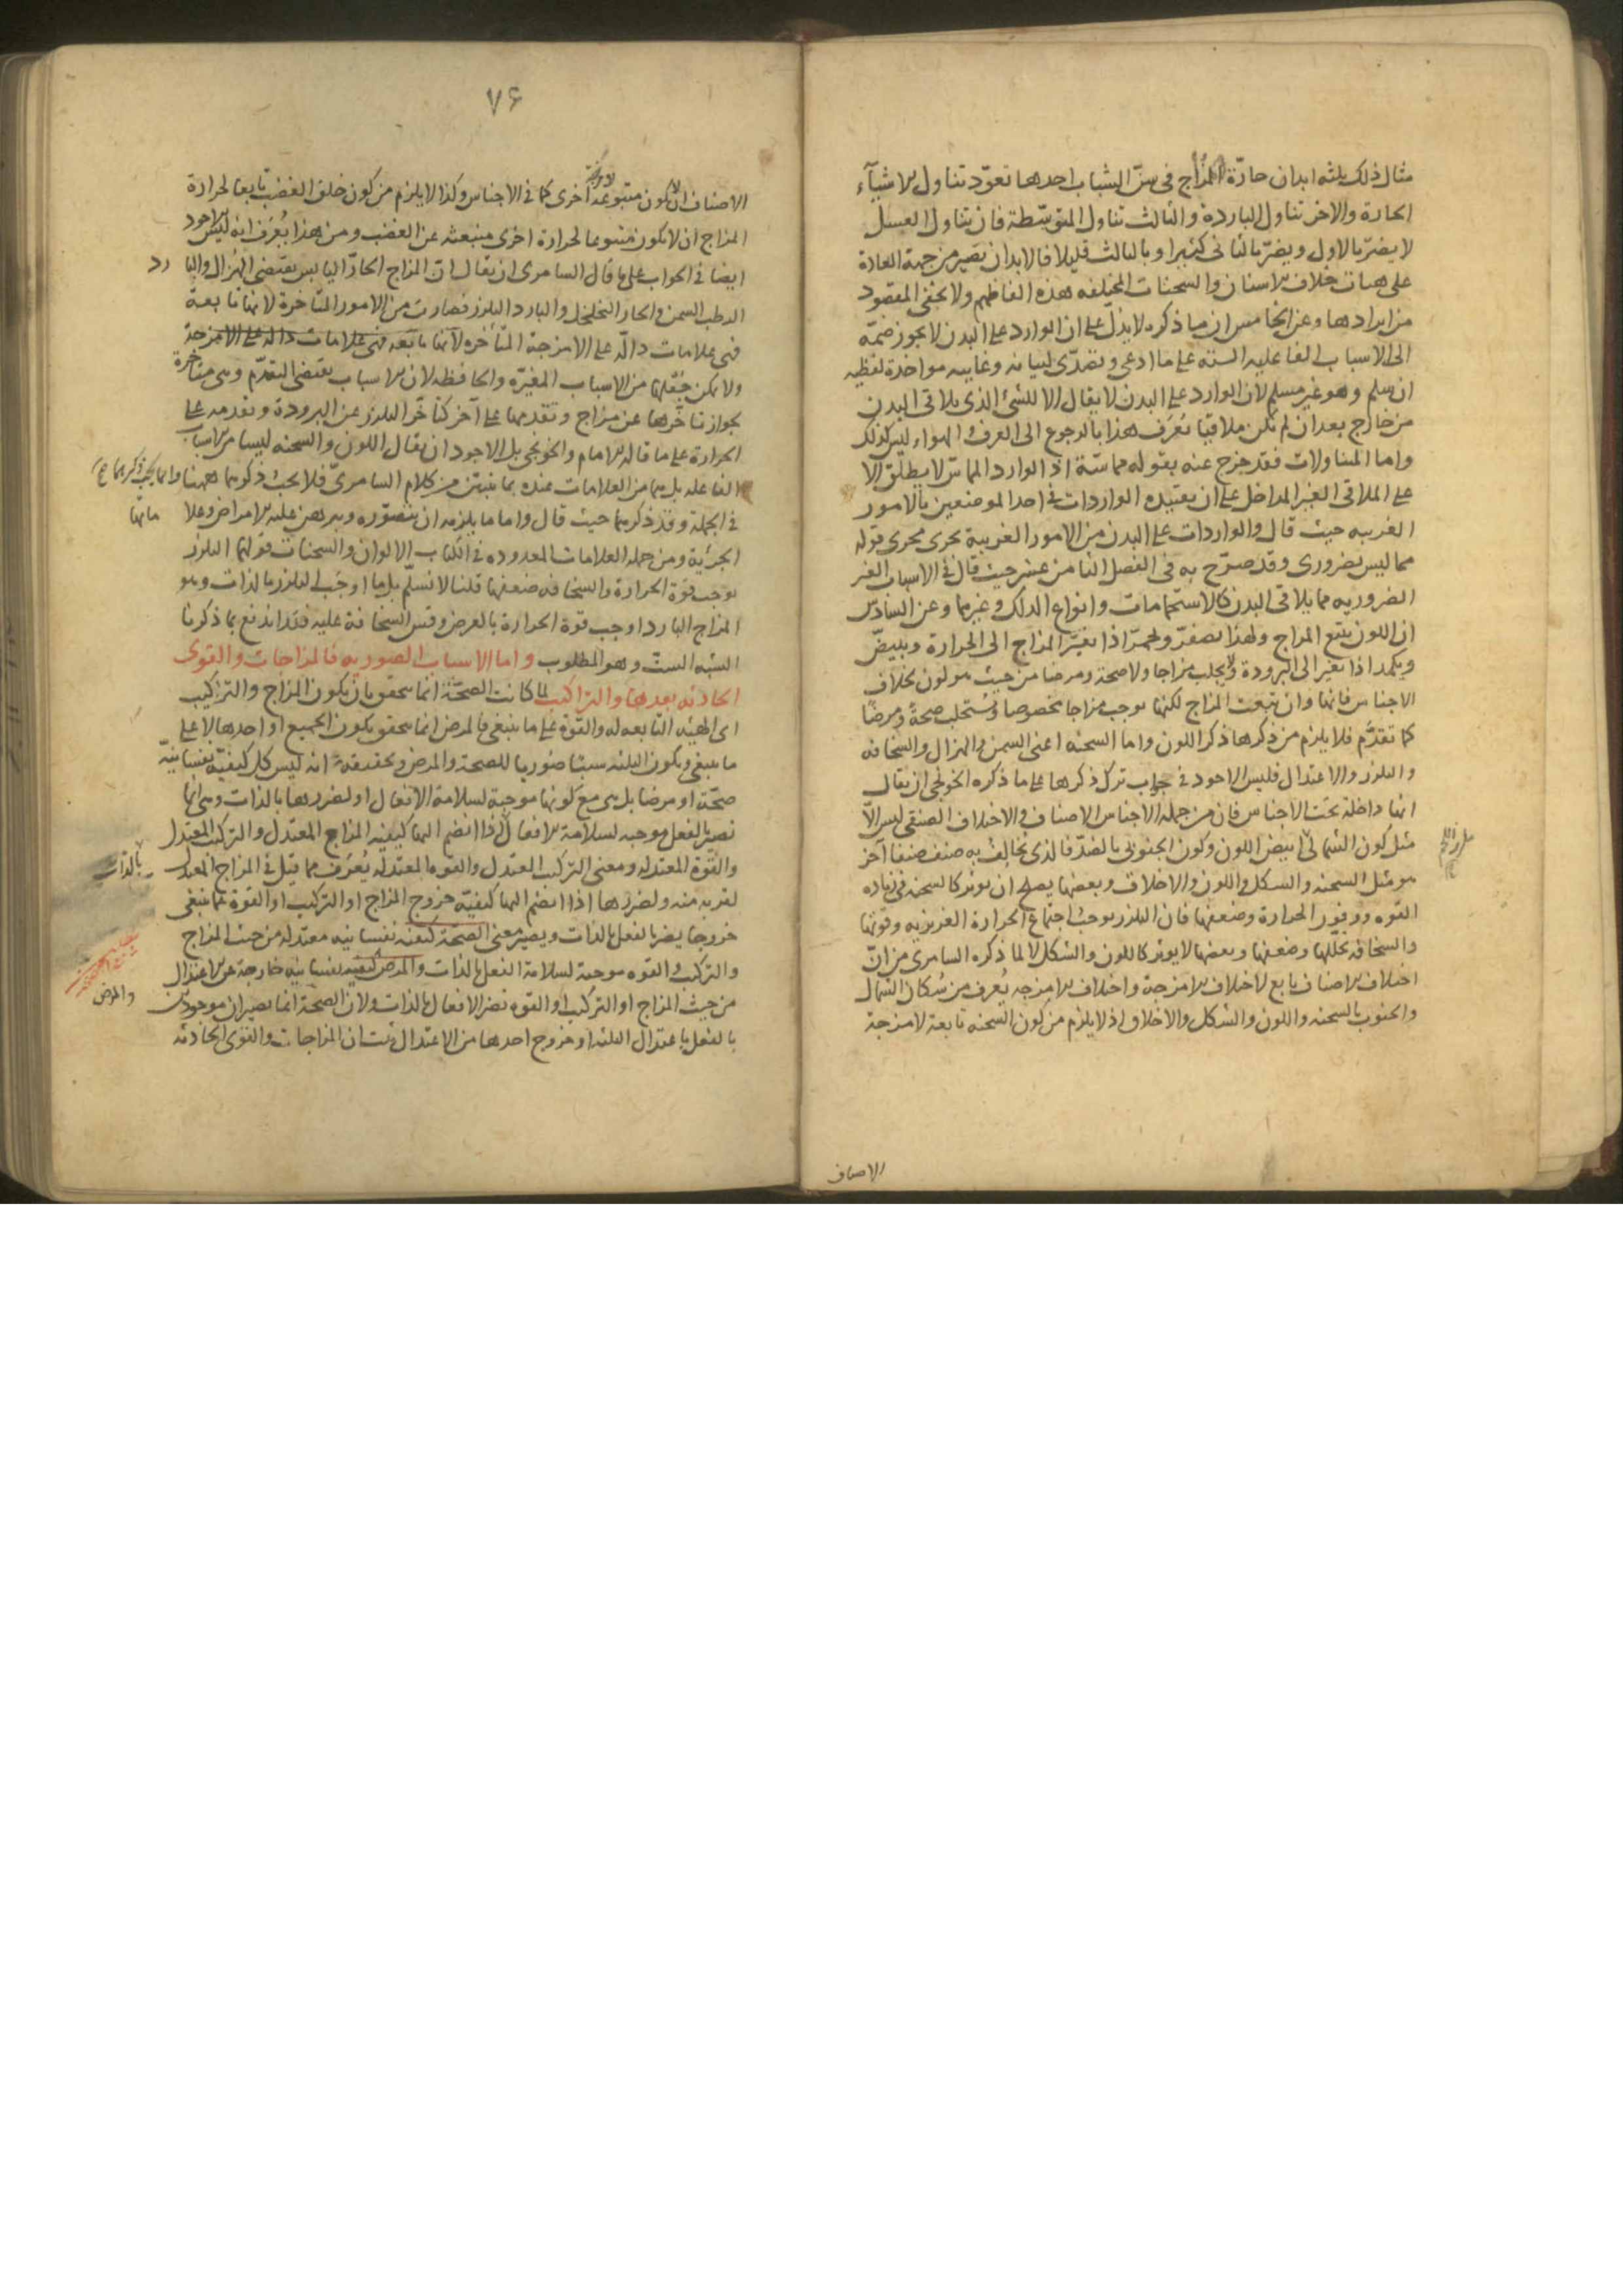 مثال ذلك ثلثه ابدان حارّة المزاج فى سنّ الشباب احدها تعوّد تناول الاشيآء
الحارة والاخر تناول الباردة والثالث تناول المتوسّطة فان تناول العسل
لا يضرّ بالاول ويضرّ بالثانى كثيرا وبالثالث قليلا فالابدان تصير من جهة العادة
على هيات خلاف الاسنان والسحنات المختلفه هذه الفاظهم ولا يخفى المقصود
من ايرادها وعن الخامس ان ما ذكره لا يدلّ على ان الوارد على البدن لا يجوز ضمّه
الى الاسباب الفاعليه الستة على ما ادعى وتصدّى لبيانه وغايته مواخذة لفظيه
ان سلم وهو غير مسلم لان الوارد على البدن لا يقال الا للشئ الذى يلاقى البدن
من خارج بعد ان لم يكن ملاقيا يُعرَف هذا بالرجوع الى العرف والهواء ليس كذلك
واما المتناولات فقد خرج عنه بقوله مماسّة اذ الوارد المماسّ لا يطلق الا
على الملاقى الغير المداخل على ان تقييده الواردات فى احد الموضعين بالامور
الغريبه حيث قال والواردات على البدن من الامور الغريبة يجرى مجرى قوله
مما ليس بضرورى وقد صرّح به فى الفصل الثامن عشر حيث قال فى الاسباب الغير
الضروريه مما يلاقى البدن كالاستحمامات وانواع الدلك وغيرها وعن السادس
ان اللون يتبع المزاج ولهذا يصفرّ ويحمرّ اذا تغيّر المزاج الى الحرارة ويبيضّ
ويكمد اذا تغير الى البرودة ولا يجلب مزاجا ولا صحة ومرضا من حيث هو لون بخلاف
الاجناس فانها وان تبعت المزاج لكنها توجب مزاجا مخصوصا وتستجلب صحة ومرضا
كما تقدّم فلا يلزم من ذكرها ذكر اللون واما السحنه اعنى السمن والهزال والسخافه
والتلزز والاعتدال فليس الاجود فى جواب ترك ذكرها على ما ذكره الخونجى ان يقال
انها داخلة تحت الاجناس فان من جملة الاجناس الاصناف والاختلاف الصنفى ليس الّا
مثل كون الشمالى ابيض اللون وكون الجنوبى بالضدّ فالذى يخالف به صنف صنفا آخر
هو مثل السحنه والشكل واللون والاخلاق وبعضها يصلح ان يوثر كالسحنه فى زياده
القوه ووفور الحرارة وضعفها فان التلزز يوجب اجتماع الحرارة الغريزيه وقوتها
والسخافه تحللها وضعفها وبعضها لا يوثر كاللون والشكل لا لما ذكره السامرى من انّ
اختلاف الاصناف تابع لاختلاف الامزجة واختلاف الامزجه يُعرف من سُكان الشمال
والجنوب بالسحنه واللون والشكل والاخلاق اذ لا يلزم من كون السحنه تابعة لامزجة
الاصناف
٧۶
الاصناف ان لا يكون متبوعة لامزجة اخرى كما فى الاجناس وكذا لا يلزم من كون خلق الغضب تابعا لحرارة
المزاج ان لا يكون متبوعا لحرارة اخرى منبعثه عن الغضب ومن هذا يُعرَف انه ليس الاجود
ايضا فى الجواب على ما قال السامرى ان يقال ان المزاج الحارّ اليابس يقتضى الهزال والبارد
الرطب السمن والحار التخلخل والبارد التلزز فصارت من الامور المتاخرة لانها تابعة
فهى علامات دالّه على الامزجة المتأخره لانها تابعه فهى علامات داله على الامزجة
ولا يمكن جَعْلها من الاسباب المغيّره والحافظه لان الاسباب يقتضى التقدّم وهى متاخرة
بجواز تاخّرها عن مزاج وتقدمها على آخر كتاخّر التلزز عن البرودة وتقدمه على
الحرارة على ما قاله الامام والخونجى بل الاجود ان يقال اللون والسحنه ليسا من الاسباب
الفاعله بل هما من العلامات عنده بما يتبيّن من كلام السامرىّ فلا يجب ذكرهما ههنا وانما يجب ذكرهما
فى الجملة وقد ذكرهما حيث قال واما ما يلزمه ان يتصوّره ويبرهن عليه الامراض وعلاماتها
الجزئية ومن جملة العلامات المعدوده فى الكتاب الالوان والسحنات قولهما التلزز
يوجب قوة الحرارة والسخافه ضعفها قلنا لا نسلّم بل ما اوجب التلزز بالذات وهو
المزاج البارد اوجب قوة الحرارة بالعرض وقس السخافة عليه فقد اندفع بما ذكرنا
الشبه الستّ وهو المطلوب واما الاسباب الصوريه فالمزاجات والقوى
الحادثه بعدها والتراكيب لما كانت الصحّة انما يتحقق بان يكون المزاج والتركيب
اى الهيئه التابعه له والقوة على ما ينبغى والمرض انما يتحقق بكون الجميع او احدها لا على
ما ينبغى ويكون الثلثه سببا صوريا للصحة والمرض وتحقيقه انه ليس كل كيفيّة نفسانيّة
صحّة او مرضا بل هى مع كونها موجبة لسلامة الافعال او لضررها بالذات وهى انها
تصير بالفعل موجبه لسلامة الافعال اذا انضم اليها كيفيه المزاج المعتدل والتركيب المعتدل
والقوة المعتدله ومعنى التركيب المعتدل والقوه المعتدله يُعرَف مما قيل فى المزاج المعتدل بالذات
لقربه منه ولضررها اذا انضم اليها كيفيّة خروج المزاج او التركيب او القوة عما ينبغى
خروجا يضر بالفعل بالذات ويصير معنى الصحّة كيفيه نفسانيه معتدله من حيث المزاج
والتركيب والقوه موجبة لسلامة الفعل بالذات والمرض كيفيه نفسانيه خارجة عن الاعتدال
من حيث المزاج او التركيب او القوه تضر الافعال بالذات ولان الصحة والمرض انما يصيران موجودين
بالفعل باعتدال الثلثه او خروج احدها من الاعتدال ثبت ان المزاجات والقوى الحادثه